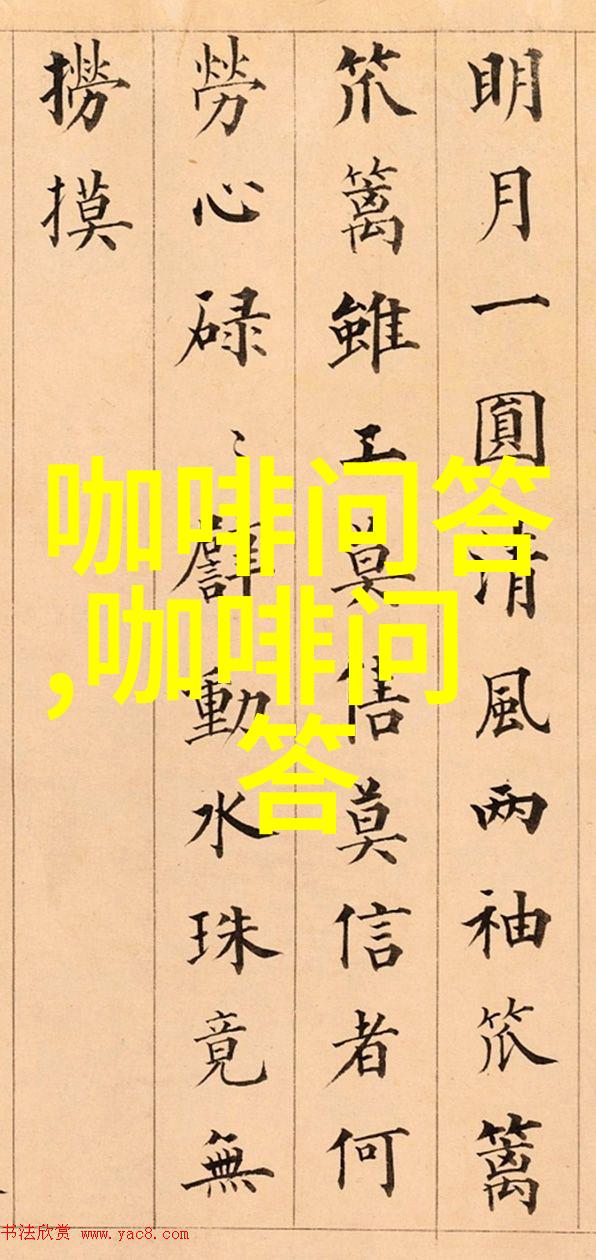 明月一圓清風两袖笊篱
笊篱雖工莫售莫信者何
勞心碌〻動水珠竟無
撈摸
咖啡问答
,咖啡问
答
书法欣赏 www.yac8.com